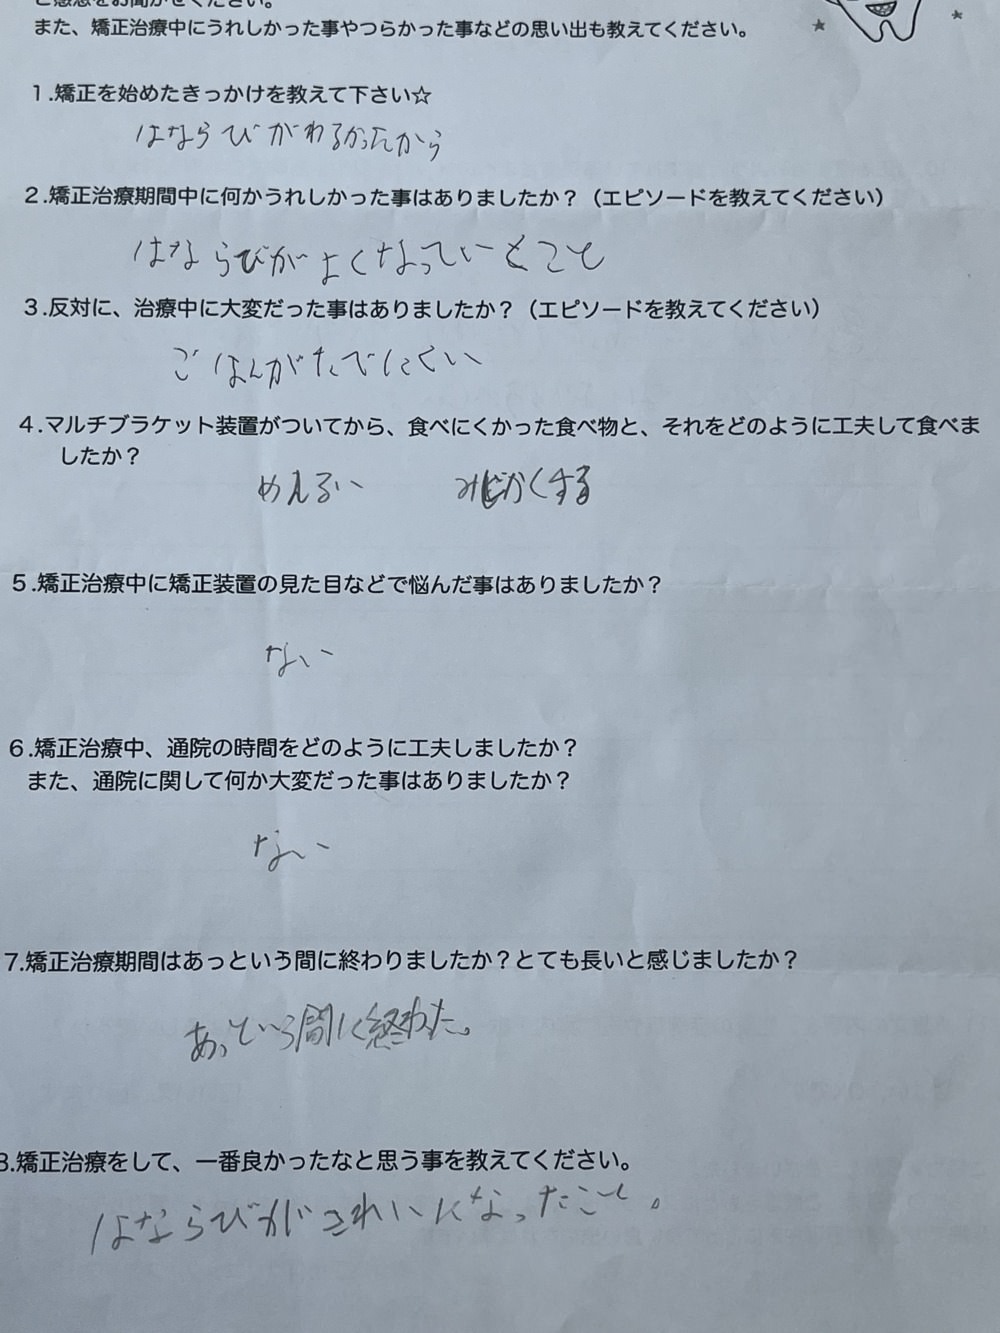 ご感想をお聞かせください。
また、矯正治療中にうれしかった事やつらかった事などの思い出も教えてください。
1.矯正を始めたきっかけを教えて下さい☆
はならびがわるかったから
2.矯正治療期間中に何かうれしかった事はありましたか？（エピソードを教えてください）
はならびがよくなっていくとこと
3.反対に、治療中に大変だった事はありましたか？（エピソードを教えてください）
ごはんがたべにくい
4.マルチブラケット装置がついてから、食べにくかった食べ物と、それをどのように工夫して食べま
したか？
めんるい みじかくする
5.矯正治療中に矯正装置の見た目などで悩んだ事はありましたか？
ない
6.矯正治療中、通院の時間をどのように工夫しましたか？
また、通院に関して何か大変だった事はありましたか？
ない
7.矯正治療期間はあっという間に終わりましたか？とても長いと感じましたか？
あっという間に終わった。
8.矯正治療をして、一番良かったなと思う事を教えてください。
はならびがきれいになったこと。